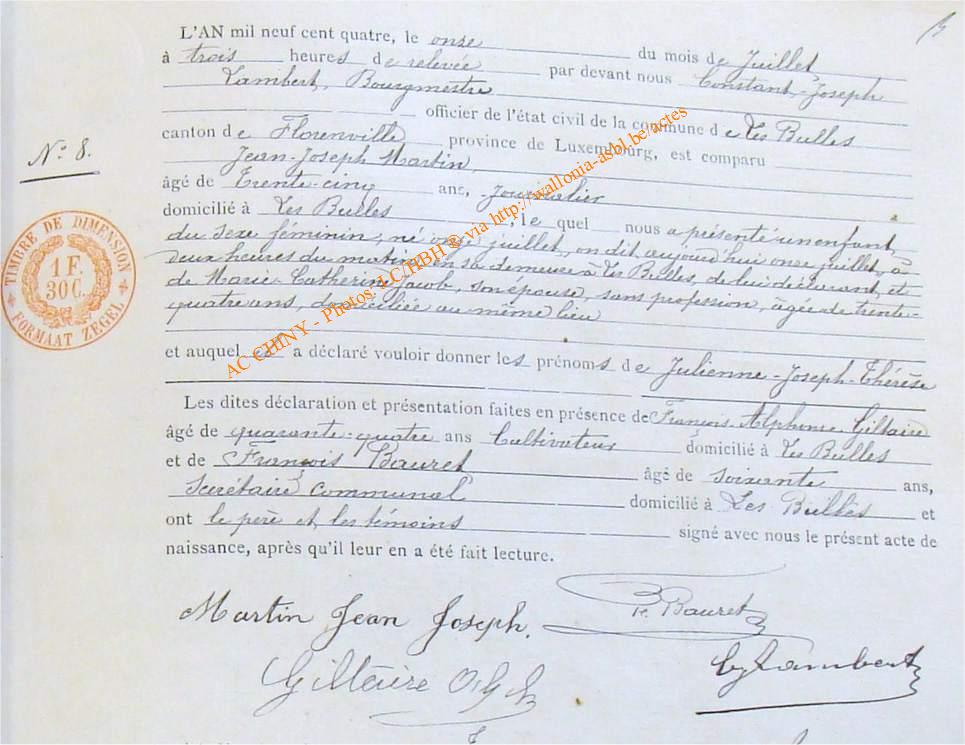 L'AN mil neuf cent quatre, le onze du mois de Juillet,
à trois heures de relevée par devant nous Constant-Joseph
Lambert, Bourgmestre
officier de l'état civil de la commune de Les Bulles
canton de Florenville province de Luxembourg, est comparu
Nº 8.
Jean-Joseph Martin,
âgé de Trente-cinq ans, Journalier
domicilié à Les Bulles, le quel nous a présenté un enfant
du sexe féminin, né onze juillet, on dit aujourd'hui onze juillet, à
deux heures du matin, en sa demeure à Les Bulles, de lui déclarant, et
de Marie-Catherine Jacob, son épouse, sans profession, âgée de trente-
quatre ans, domiciliée au même lieu
et auquel il a déclaré vouloir donner les prénoms de Julienne-Joseph-Thérèse
Les dites déclaration et présentation faites en présence de François Alphonse Giltaire
âgé de quarante-quatre ans Cultivateur domicilié à Les Bulles
et de François Bauret âgé de soixante ans,
Secrétaire communal domicilié à Les Bulles et
ont le père et les témoins signé avec nous le présent acte de
naissance, après qu'il leur en a été fait lecture.
Martin Jean Joseph.
F. Bauret
Giltaire
Lambert
TIMBRE DE DIMENSION
1 F.
30 C.
FORMAAT ZEGEL
AC CHINY - Photos: LC HBH ® via http://wallonia-asbl.be/actes